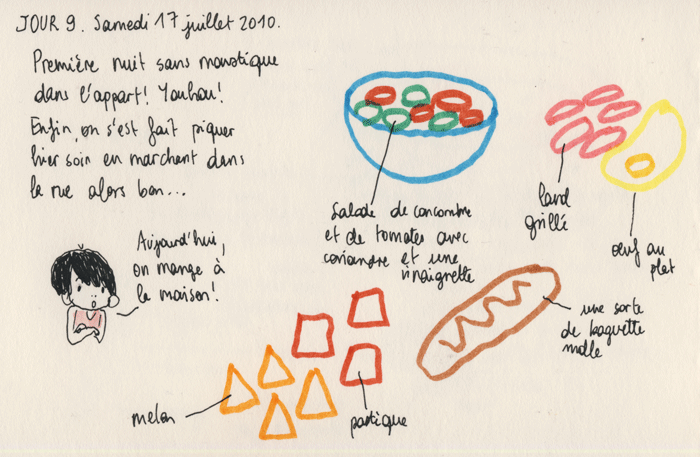 JOUR 9. Samedi 17 juillet 2010.
Première nuit sans moustique
dans l'appart! Youhou!
Enfin, on s'est fait piquer
hier soir en marchant dans
la rue alors bon...
Aujourd'hui,
on mange à
la maison!
Salade de concombre
et de tomates avec
coriandre et une
vinaigrette
lard
grillé
oeuf au
plat
une sorte
de baguette
molle
melon
pastèque